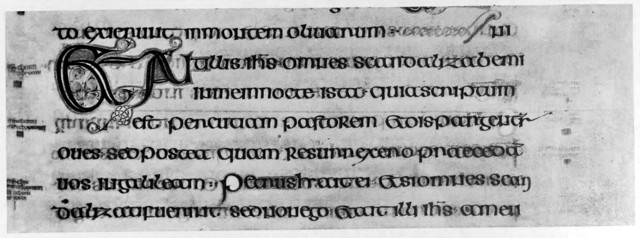 to exierunt in montem oliuarum ni
Et ait illis ihs omnes scandalizabemi
in me in nocte ista quia scriptum
est percutiam pastorem et dispargentur
oues sed postea quam resurrexero praecedā
uos in galileam petrus h ait ei etsi omnes scan
dalizati fuerint sed non ego et ait illi ihs amen